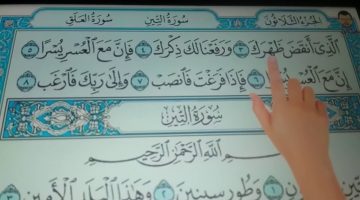 الجزء الثلاثون سورة التين سورة العلق
الذي أنقض ظهرك ٣ ورفعنا لك ذكرك ٤ فإن مع العسر يسرا ٥
إن مع العسر فإذا فرغت فانصب ٧ وإلى ربك فارغب ٨
سورة التين
بسم الله الرحمن الرحيم
وطور سينين ٢ وهذا البلد الأمين ٣